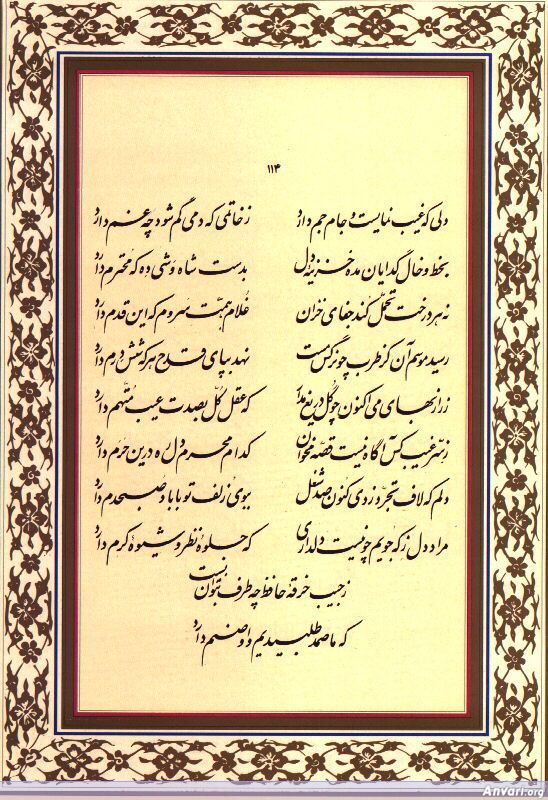 ۱۱۴
دلی که غیب نمایست و جام جم دارد ز خاتمی که دمی گم شود چه غم دارد
بخط و خال گدایان مده خزینه دل بدست شاه وشی ده که محترم دارد
نه هر درخت تحمل کند جفای خزان غلام همت سروم که این قدم دارد
رسید موسم آن کز طرب چو نرگس مست نهد بپای قدح هر که شش درم دارد
زر از بهای می اکنون چو گل دریغ مدار که عقل کل بصدت عیب متهم دارد
ز سر غیب کس آگاه نیست قصه مخوان کدام محرم دل ره درین حرم دارد
دلم که لاف تجرد زدی کنون صد شغل ببوی زلف تو با باد صبحدم دارد
مراد دل ز که جویم چو نیست دلداری که جلوه نظر و شیوه کرم دارد
ز جیب خرقه حافظ چه طرف بتوان بست
که ما صمد طلبیدیم و او صنم دارد
Anvari.org